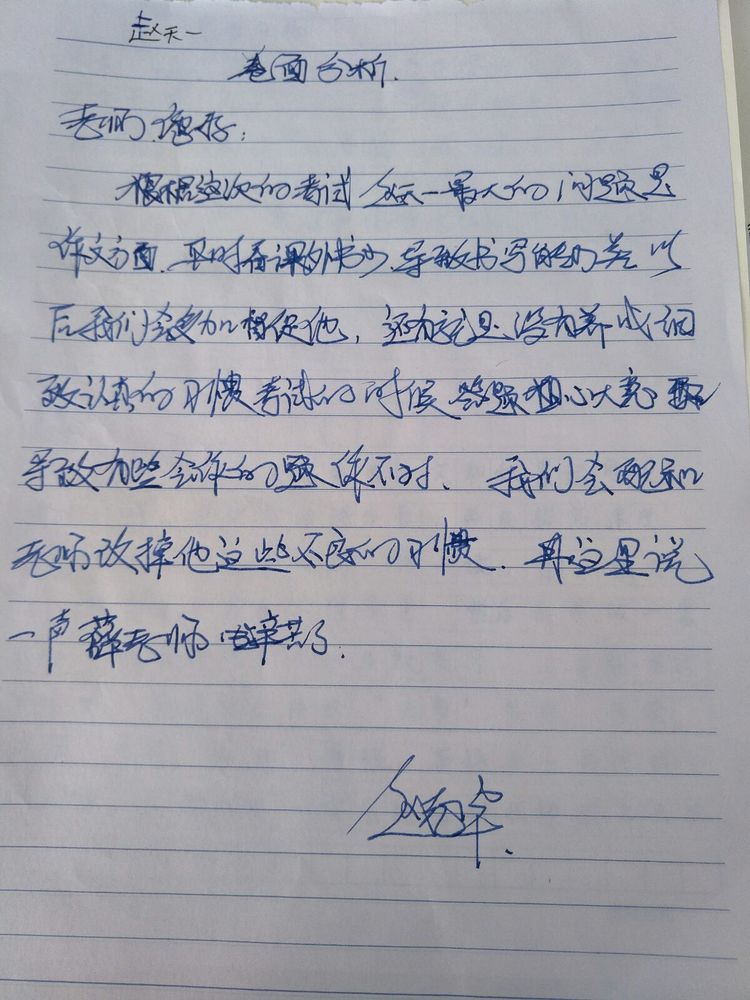 赵天一
卷面分析.
老师.您好:
根据这次的考试赵天一最大的问题是
作文方面.平时看课外书少.导致书写能力差以
后我们会更加督促他,还有就是没有养成细
致认真的习惯考试的时候答题粗心大意
导致有些会作的题做不对.我们会配合
老师改掉他这些不良的习惯.再这里说
一声薛老师辛苦了.